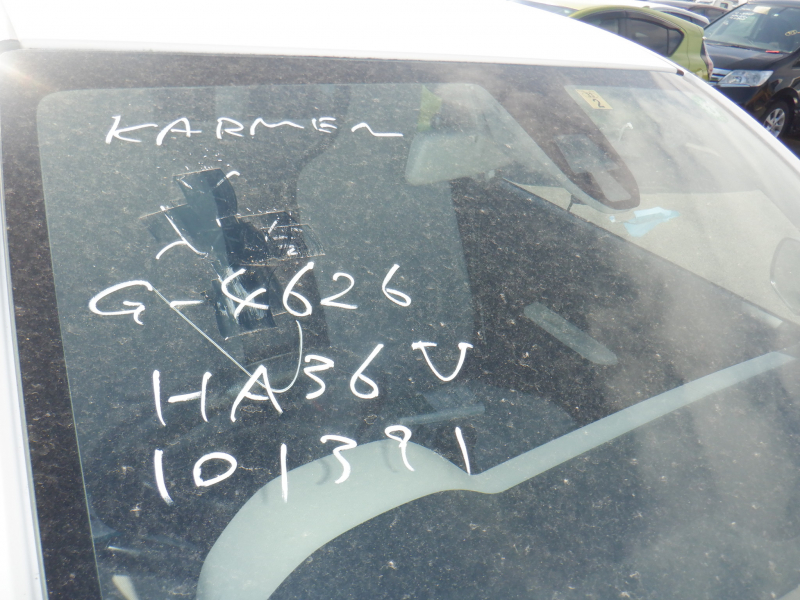 KARMEN
G-4626
HA36V
101391